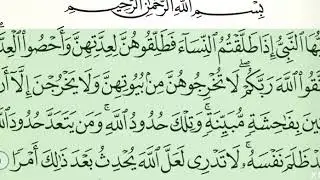 بِسْمِ ٱللَّهِ ٱلرَّحْمَٰنِ ٱلرَّحِيمِ
يُّهَا ٱلنَّبِىُّ إِذَا طَلَّقْتُمُ ٱلنِّسَآءَ فَطَلِّقُوهُنَّ لِعِدَّتِهِنَّ وَأَحْصُوا۟ ٱلْعِدَّ
تَّقُوا۟ ٱللَّهَ رَبَّكُمْ ۖ لَا تُخْرِجُوهُنَّ مِنۢ بُيُوتِهِنَّ وَلَا يَخْرُجْنَ إِلَّآ أَن
تِينَ بِفَٰحِشَةٍ مُّبَيِّنَةٍ ۚ وَتِلْكَ حُدُودُ ٱللَّهِ ۚ وَمَن يَتَعَدَّ حُدُودَ ٱللَّهِ
قَدْ ظَلَمَ نَفْسَهُۥ ۚ لَا تَدْرِى لَعَلَّ ٱللَّهَ يُحْدِثُ بَعْدَ ذَٰلِكَ أَمْرًا